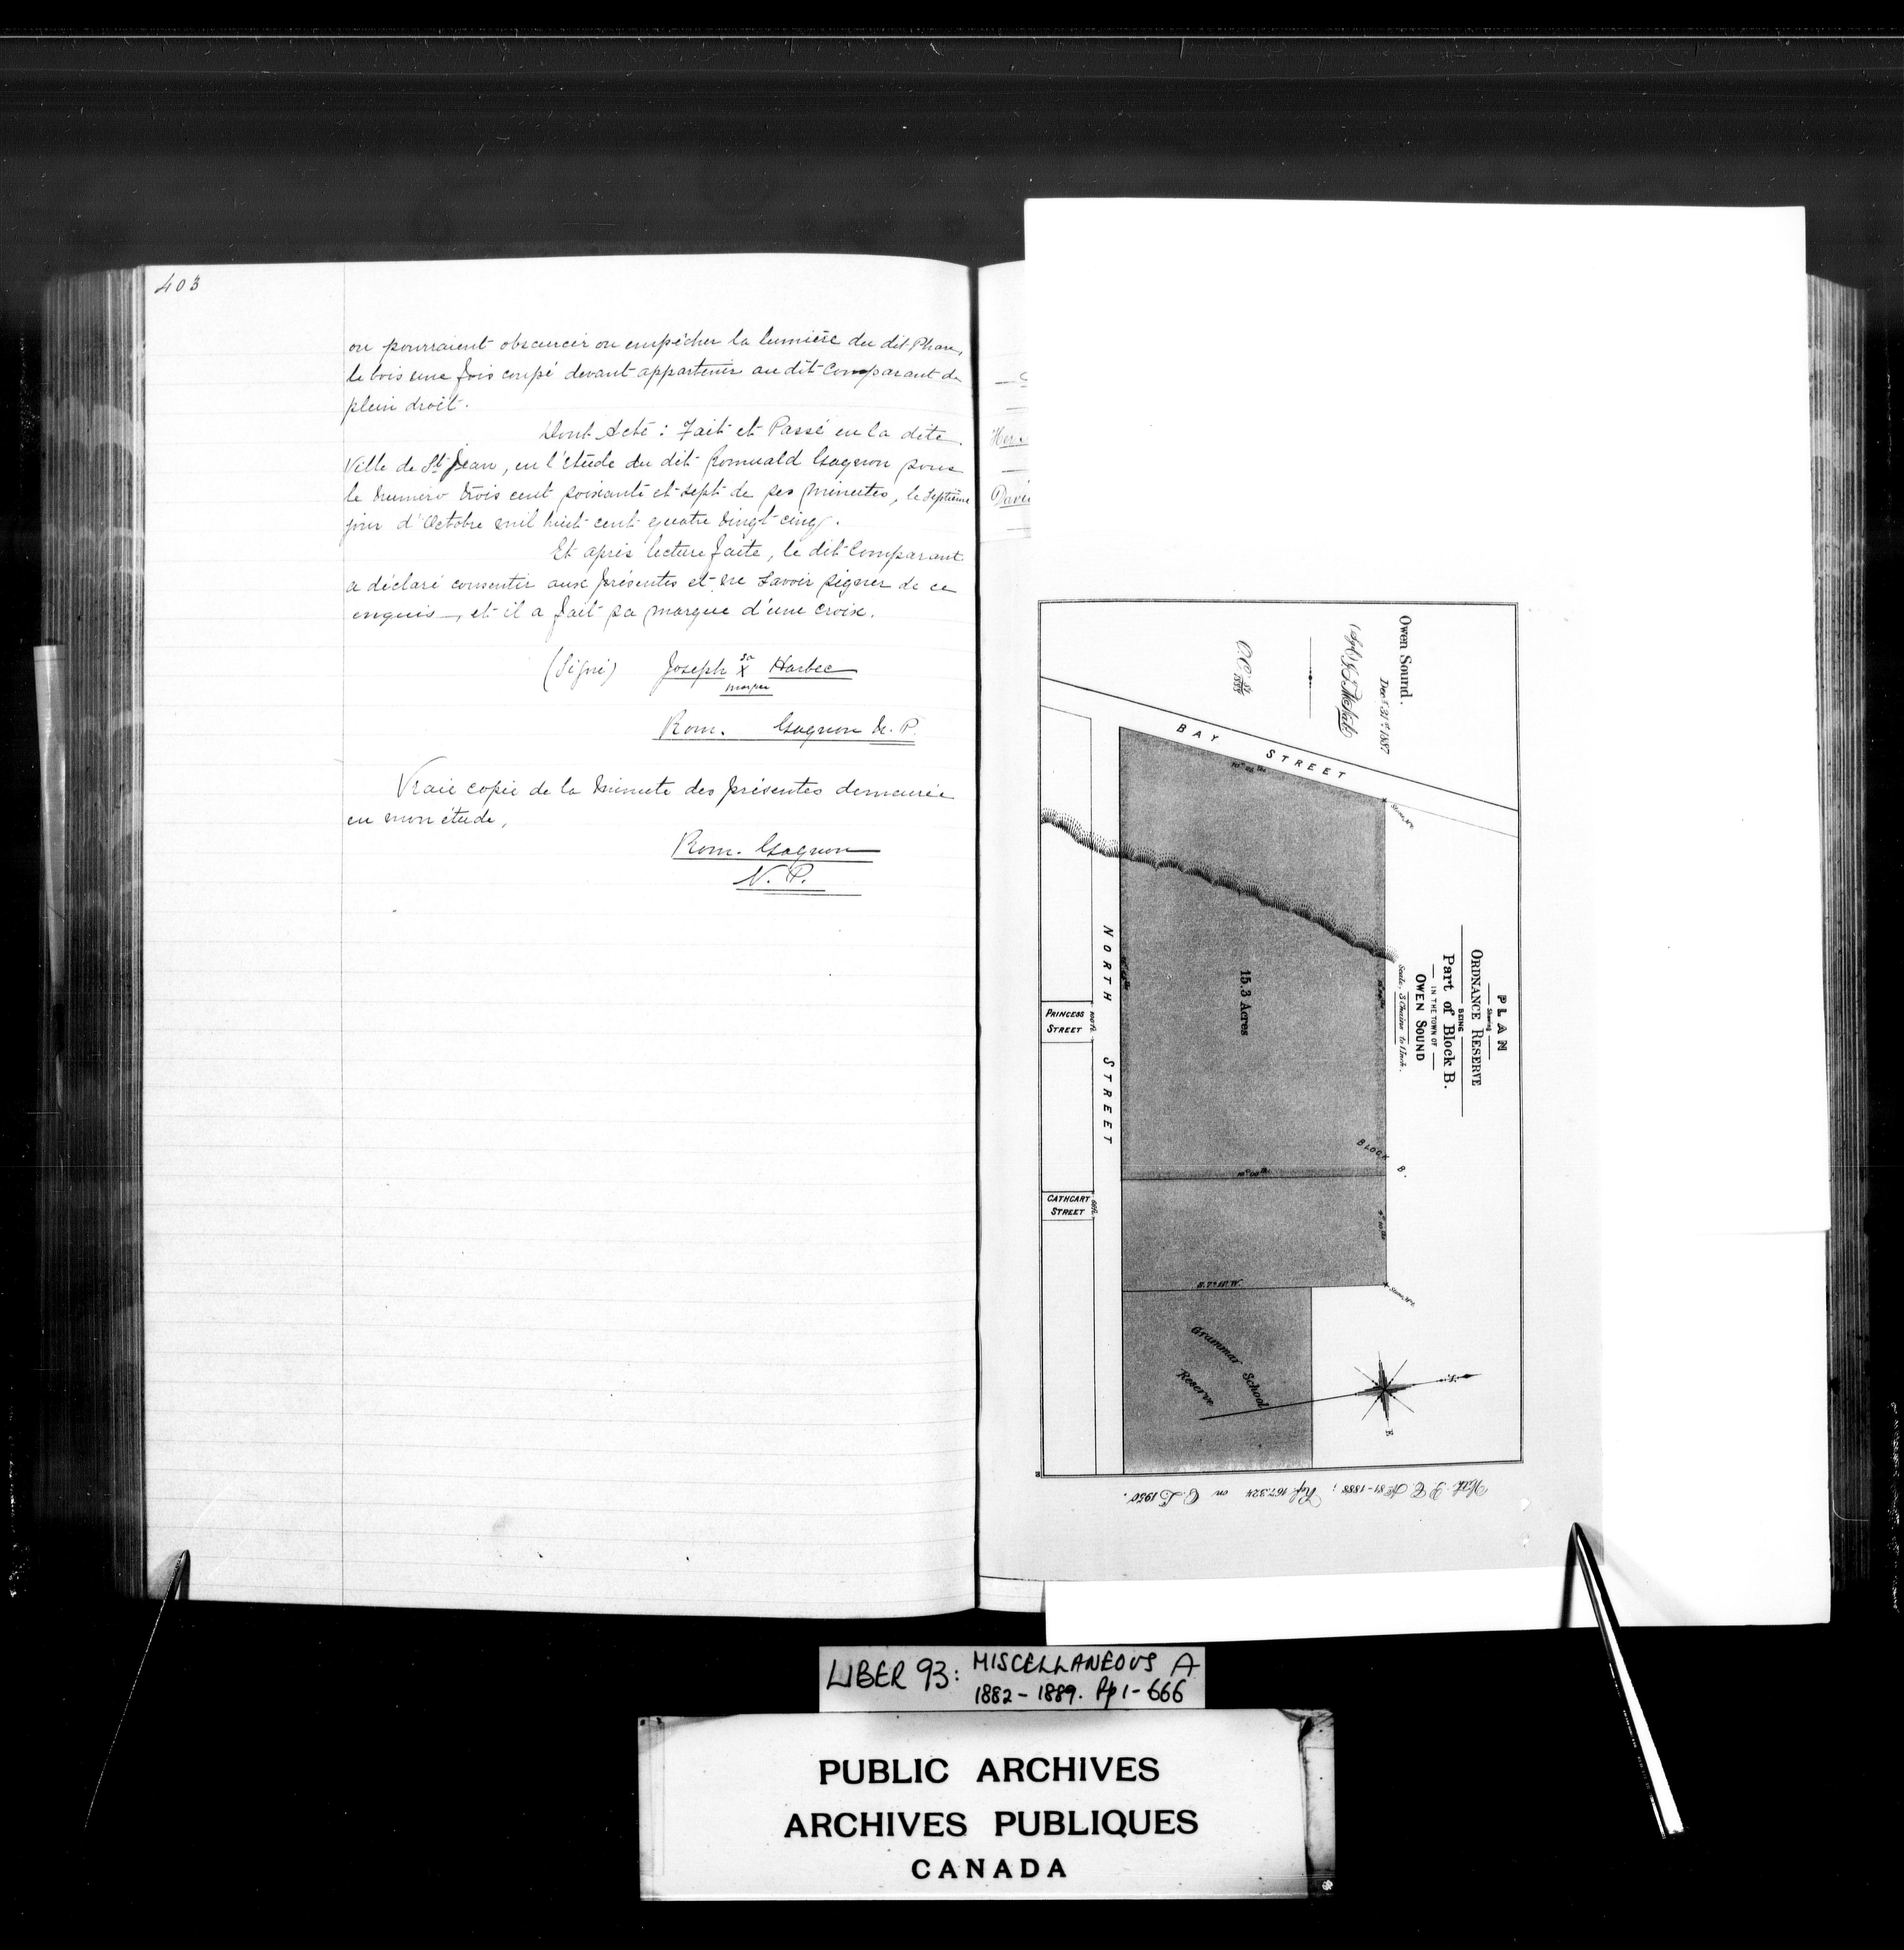 403
ou pourraient obscurcir ou empêcher la lumière du dit Phare,
le bois une fois coupé devant appartenir au dit Comparant de
plein droit.
Dont Acte : Fait et Passé en la dite
Ville de St Jean, en l'étude du dit Romuald Gagnon sous
le numéro trois cent soixante et sept de ses minutes, le septième
jour d'Octobre mil huit cent quatre vingt cinq.
Et après lecture faite, le dit Comparant
a déclaré consentir aux présentes et ne savoir signer de ce
enquis, et il a fait sa marque d'une croix.
(Signé) Joseph sa X marque Harbec
Rom. Gagnon N. P.
Vraie copie de la minute des présentes demeurée
en mon étude,
Rom. Gagnon
N. P.
Her
Davi
PLAN
Shewing
ORDNANCE RESERVE
BEING
Part of Block B.
IN THE TOWN OF
OWEN SOUND
Scale, 3 Chains to 1 Inch.
Owen Sound.
Dec. 31st 1887
BAY STREET
NORTH STREET
15.3 Acres
BLOCK B.
PRINCESS
STREET
100 ft.
CATHCART
STREET
66 ft.
Grammar School
Reserve
E
LIBER 93: MISCELLANEOUS A
1882-1889. Pp 1-666
PUBLIC ARCHIVES
ARCHIVES PUBLIQUES
CANADA